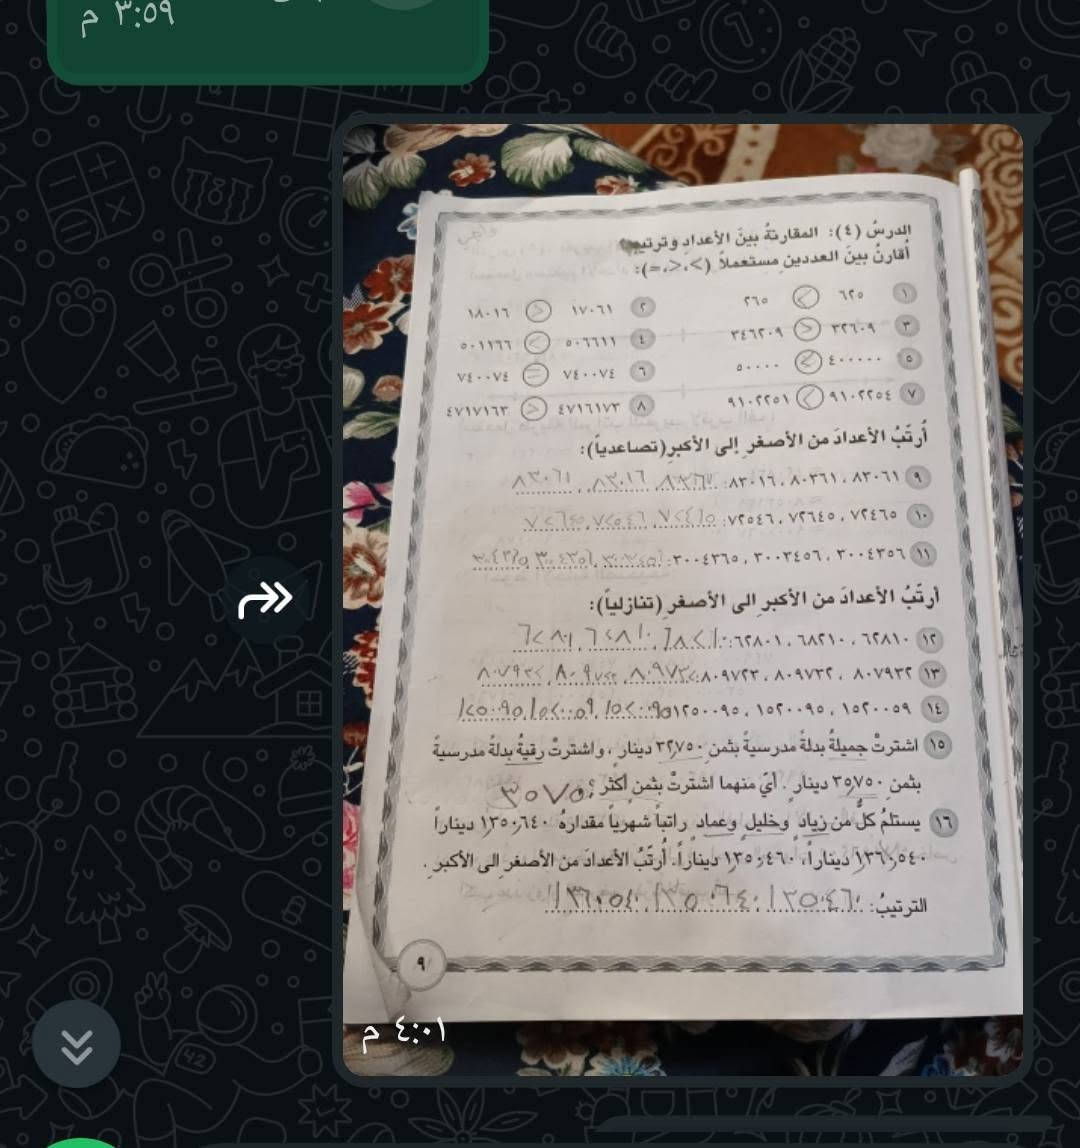 ٣:٥٩ م
الدرسُ (٤): المقارنةُ بينَ الأعدادِ وترتيبها
واجب
أُقارنُ بينَ العددينِ مستعملاً (<،>،=):
١ ٦٢٥ > ٢٦٠ ٢ ١٧٠٦١ < ١٨٠١٦
٣ ٣٢٦٠٩ < ٣٤٦٢٠٩ ٤ ٥٠٦٦١١ > ٥٠١١٦٦
٥ ٤٠٠٠٠٠ > ٥٠٠٠٠ ٦ ٧٤٠٠٧٤ = ٧٤٠٠٧٤
٧ ٩١٠٢٢٥٤ > ٩١٠٢٢٥١ ٨ ٤٧١٦١٧٣ < ٤٧١٧١٦٣
أُرتّبُ الأعدادَ من الأصغرِ إلى الأكبرِ(تصاعدياً):
٩ ٨٣٠٦١ ، ٨٠٣٦١ ، ٨٣٠١٦:
٨٣٠١٦ ، ٨٣٠٦١
١٠ ٧٢٤٦٥ ، ٧٢٦٤٥ ، ٧٢٥٤٦: ٧٢٤٦٥ ، ٧٢٥٤٦ ، ٧٢٦٤٥
١١ ٣٠٠٤٣٥٦ ، ٣٠٠٣٤٥٦ ، ٣٠٠٤٣٦٥:
أُرتّبُ الأعدادَ من الأكبرِ إلى الأصغرِ (تنازلياً):
١٢ ٦٢٨١٠ ، ٦٨٢١٠ ، ٦٢٨٠١: ٦٨٢١٠ ، ٦٢٨١٠ ، ٦٢٨٠١
١٣ ٨٠٧٩٣٢ ، ٨٠٩٧٣٢ ، ٨٠٩٧٢٣: ٨٠٩٧٣٢ ، ٨٠٩٧٢٣ ، ٨٠٧٩٣٢
١٤ ١٥٢٠٠٥٩ ، ١٥٢٠٠٩٠ ، ١٢٥٠٠٩٠ ١٥٢٠٠٩٠ ، ١٥٢٠٠٥٩ ، ١٢٥٠٠٩٠
١٥ اشترتْ جميلةُ بدلةً مدرسيةً بثمنِ ٣٢٧٥٠ دينارٍ، واشترتْ رقيةُ بدلةً مدرسيةً
بثمنِ ٣٥٧٥٠ دينارٍ. أيٌ منهما اشترتْ بثمنٍ أكثرَ؟ ٣٥٧٥٠
١٦ يستلمُ كلٌ من زيدٍ وخليلٍ وعمادٍ راتباً شهرياً مقدارهُ ١٣٥٠٦٤٠ ديناراً
١٣٦٠٥٤٠ ديناراً، ١٣٥٠٤٦٠ ديناراً. أُرتّبُ الأعدادَ من الأصغرِ إلى الأكبرِ.
الترتيبُ: ١٣٥٠٤٦٠ ، ١٣٥٠٦٤٠ ، ١٣٦٠٥٤٠
٩
٤:٠١ م